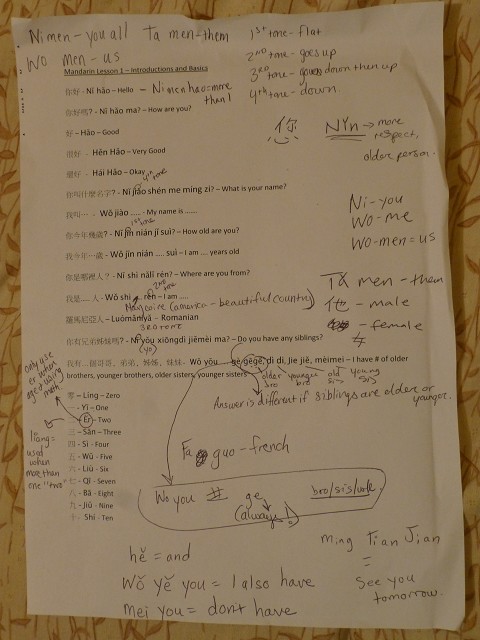 Ni men - you all Ta men - them
Wo men - us
1st tone - flat
2nd tone - goes up
3rd tone - goes down then up
4th tone - down
Mandarin Lesson 1 – Introductions and Basics
你好 - Nĭ hăo – Hello - Ni men hao = more than 1
你好嗎? - Nĭ hăo ma? – How are you?
好 – Hăo – Good
很好 - Hěn Hăo – Very Good
還好 - Hái Hăo – Okay
4th tone
你叫什麼名字? - Nĭ jiào shén me míng zì? – What is your name?
我叫… - Wŏ jiào ….. - My name is ……
1st tone
你今年幾歲? - Nĭ jīn nián jĭ suì? – How old are you?
我今年…歲 - Wŏ jīn nián …. suì – I am …. years old
你是哪裡人? - Nĭ shì nălĭ rén? – Where are you from?
2nd tone
我是…. 人 - Wŏ shì … rén – I am …..
(america - beautiful country)
羅馬尼亞人 – Luómăníyà – Romanian
3rd tone
你有兄弟姊妹嗎? - Nĭ yŏu xiōngdì jiěmèi ma? – Do you have any siblings?
(yo)
我有二個哥哥, 弟弟, 姊姊, 妹妹 - Wŏ yŏu gè gēge, dì di, jie jiě, mèimei – I have # of older
brothers, younger brothers, older sisters, younger sisters
older bro younger bro old sis young sis
Answer is different if siblings are older or younger.
您 Nín → more respect, older person.
Ni - you
Wo - me
Wo-men = us
Ta men - them
他 - male
- female
only use er when age or doing math
liang = used when more than one "two"
零 – Líng – Zero
一 - Yī – One
二 - Èr – Two
三 – Sān – Three
四 - Sì - Four
五 - Wŭ - Five
六 - Liù - Six
七 - Qī - Seven
八 - Bā - Eight
九 - Jiŭ - Nine
十 - Shí - Ten
Fa guo - french
Wo you # ge bro/sis/
(always!)
hě = and
Wŏ yě you = I also have
mei you = don't have
ming Tian Jian
=
See you tomorrow.